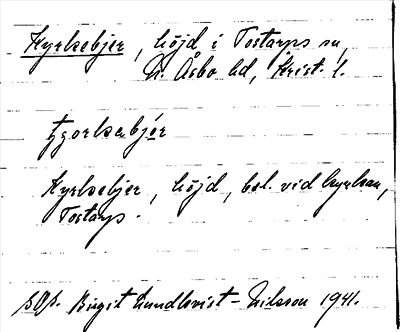 Kyrkebjer, höjd i Tostarps sn,
N. Åsbo hd, Krist. l.
Kyrkebjer, höjd, bel. vid kyrkan,
Tostarp.
Birgit Lundkvist-Nilsson 1941.